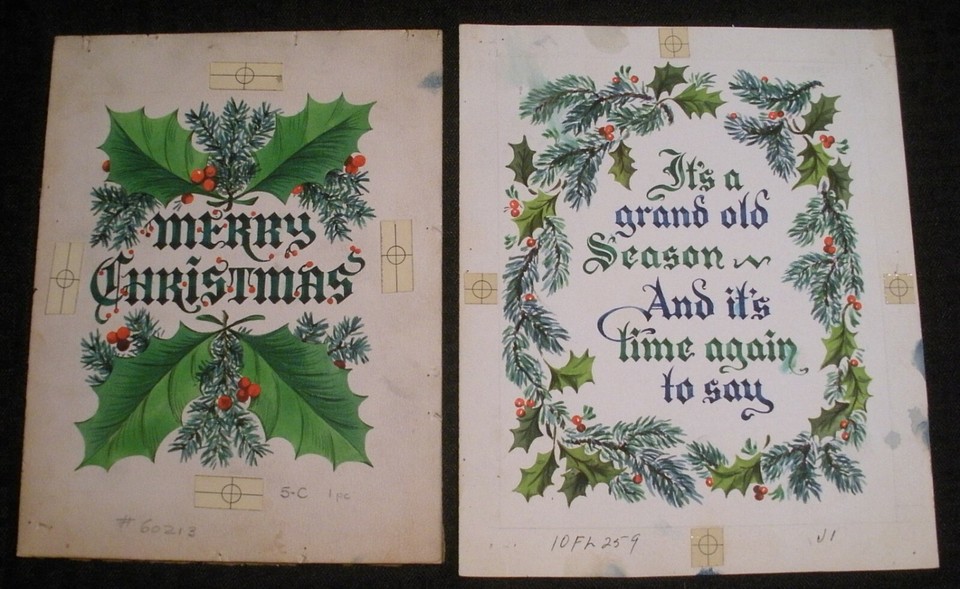 MERRY
CHRISTMAS
5-C 1 pc
# 60213
It's a
grand old
Season
And it's
time again
to say
10FL259
J1